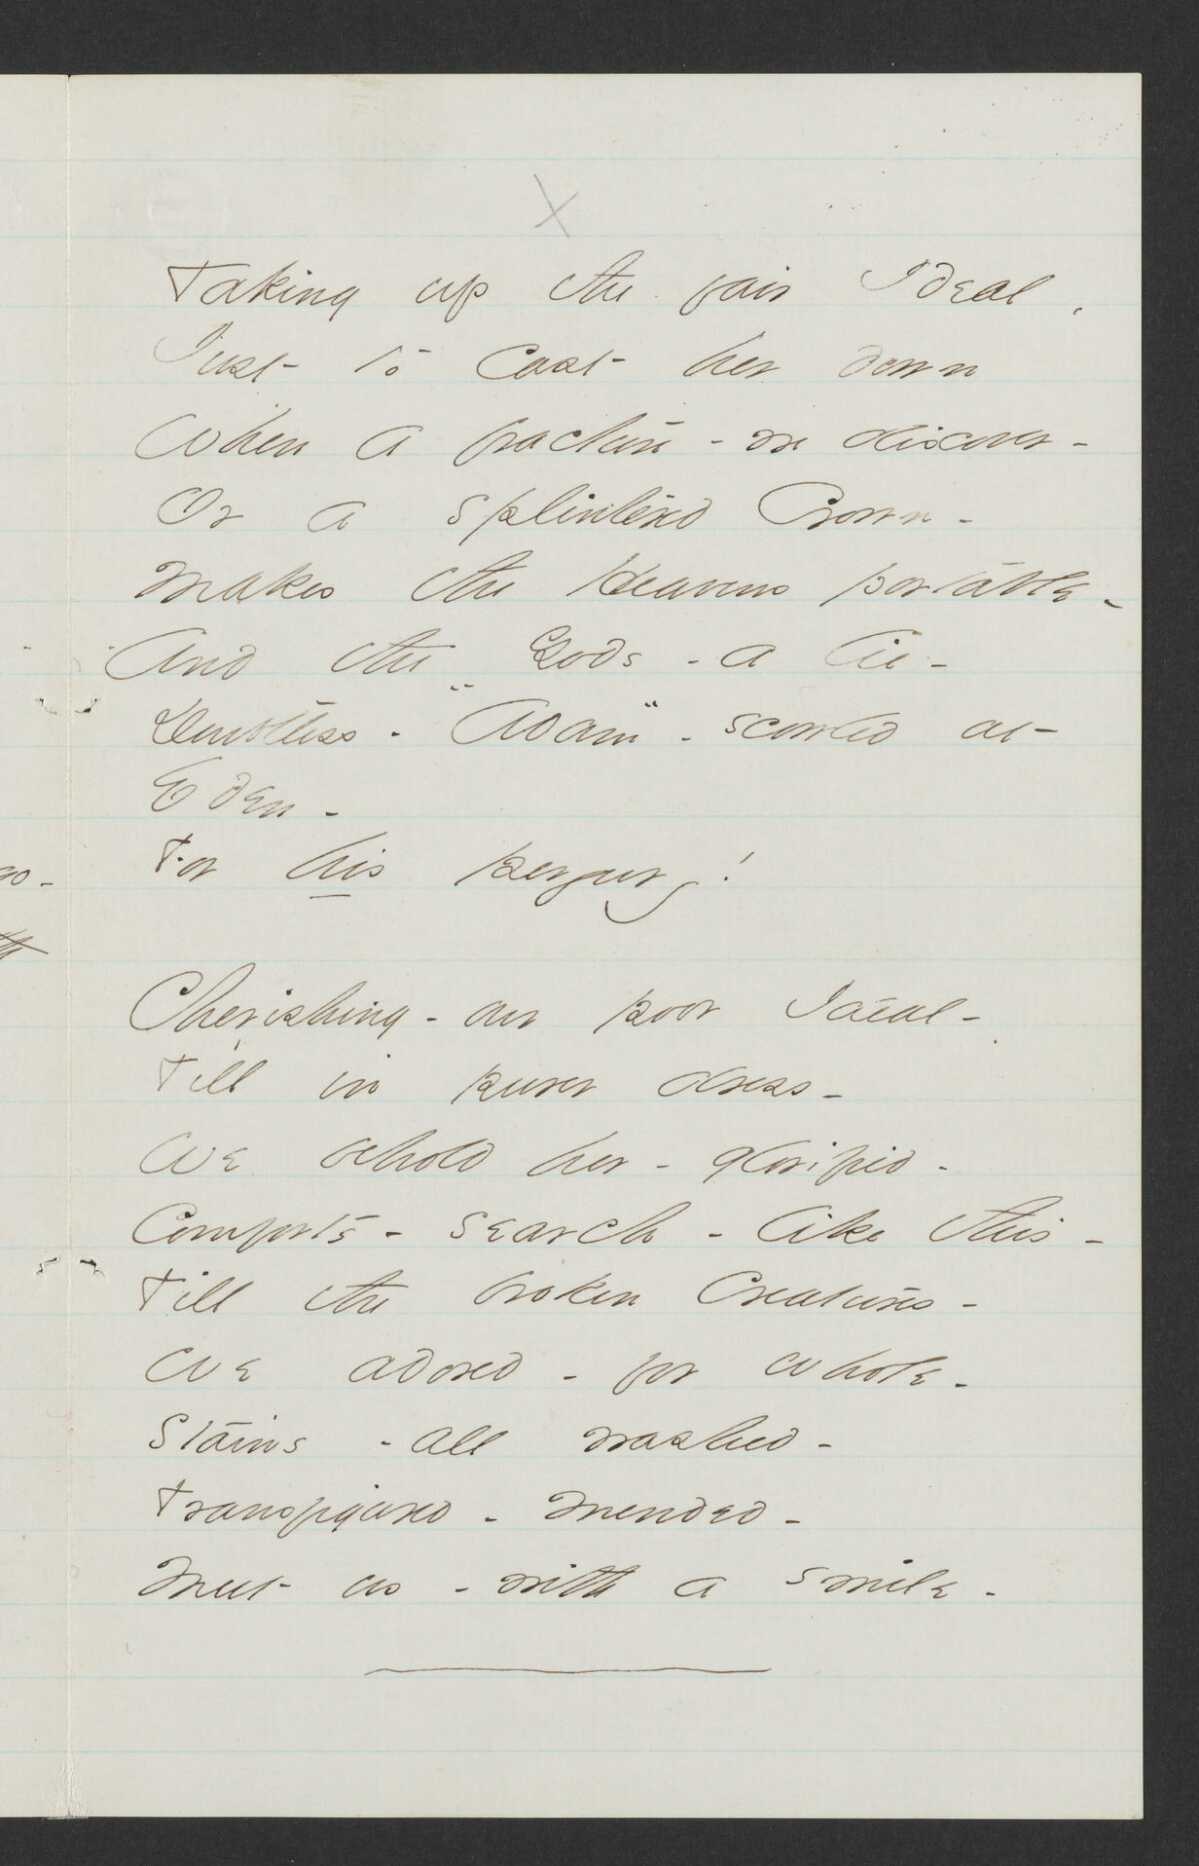 X
Taking up the fair Ideal,
Just to Cast her down
When a fracture - we discover -
Or a splintered Crown -
Makes the Heavens portable -
And the Gods - a lie -
Doubtless - "Adam" - scowled at
Eden -
For his perjury!
Cherishing - our poor Ideal -
Till in purer dress -
We behold her - glorified -
Comforts - search - like this -
Till the broken Creatures -
We adored - for whole -
Stains - all washed -
Transfigured - mended -
Meet us - with a smile -